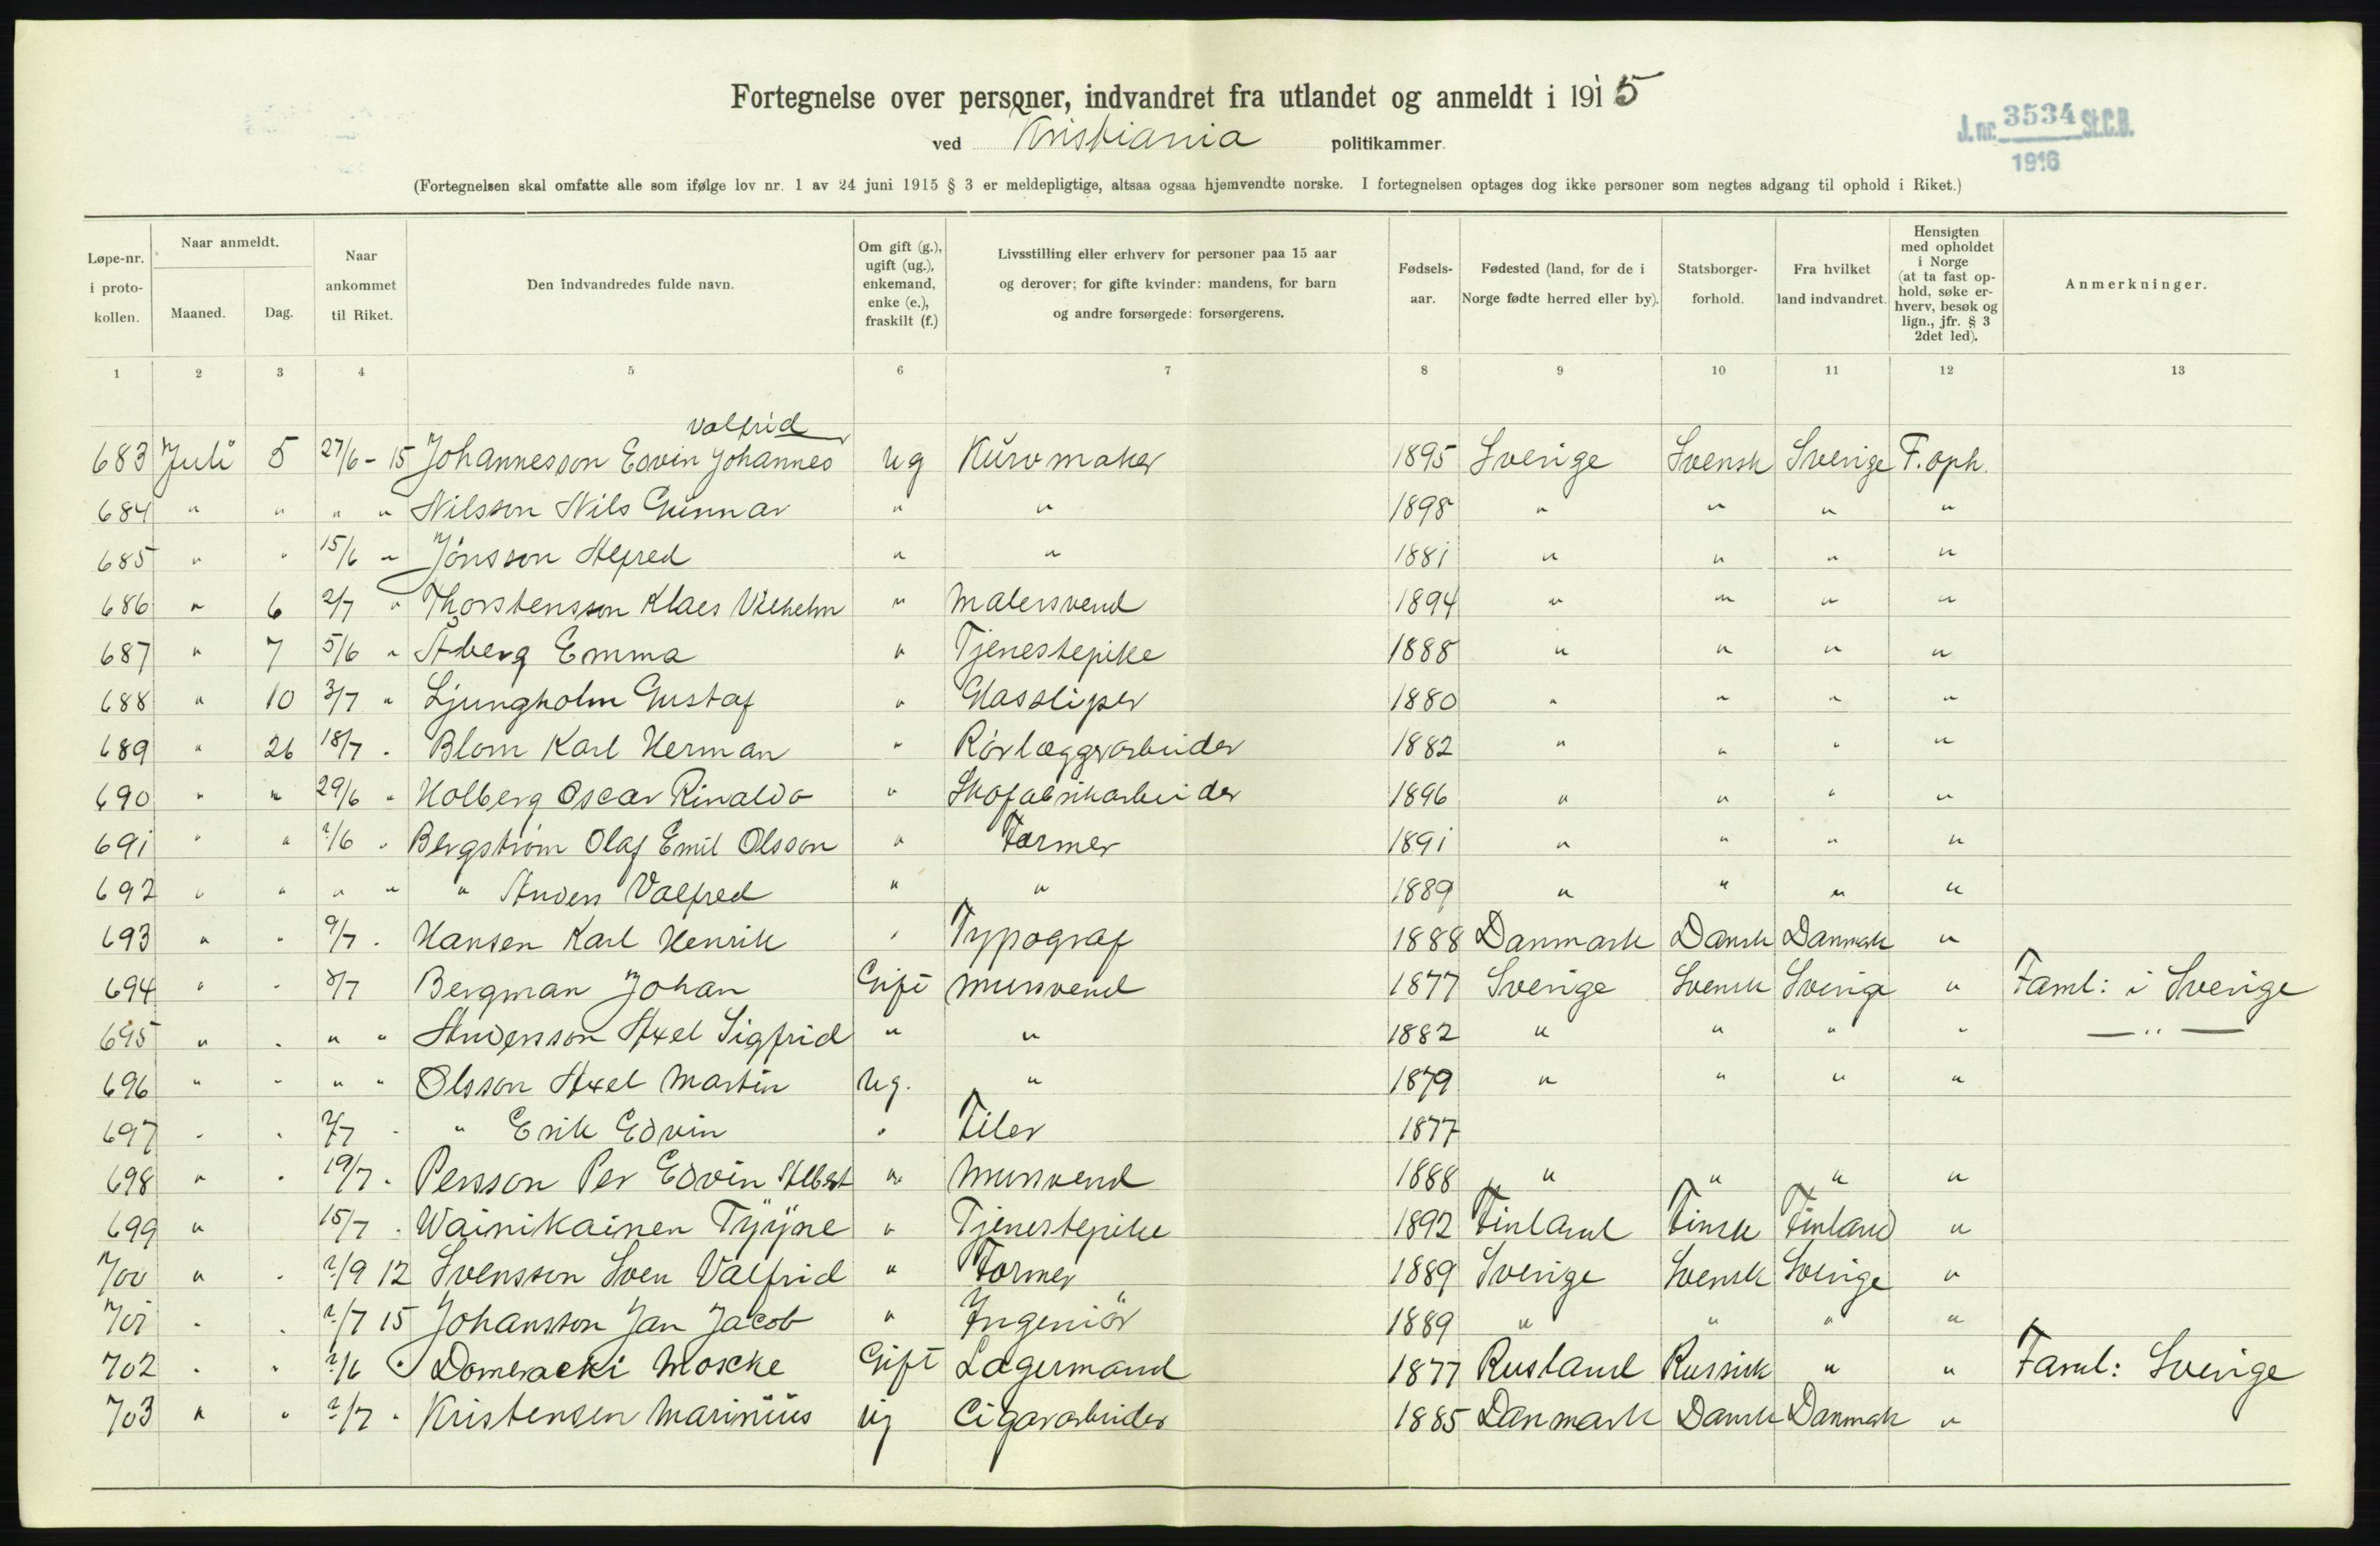 Fortegnelse over personer, indvandret fra utlandet og anmeldt i 1915
ved Kristiania politikammer.
J. nr. 3534 St.C.B.
1916
(Fortegnelsen skal omfatte alle som ifølge lov nr. 1 av 24 juni 1915 § 3 er meldepligtige, altsaa ogsaa hjemvendte norske. I fortegnelsen optages dog ikke personer som negtes adgang til ophold i Riket.)
Løpe-nr. i proto- kollen. Naar anmeldt. Maaned. Dag. Naar ankommet til Riket. Den indvandredes fulde navn. Om gift (g.), ugift (ug.), enkemand, enke (e.), fraskilt (f.) Livsstilling eller erhverv for personer paa 15 aar og derover; for gifte kvinder: mandens, for barn og andre forsørgede: forsørgerens. Fødsels- aar. Fødested (land, for de i Norge fødte herred eller by). Statsborger- forhold. Fra hvilket land indvandret. Hensigten med opholdet i Norge (at ta fast op- hold, søke er- hverv, besøk og lign., jfr. § 3 2det led). Anmerkninger.
1 2 3 4 5 6 7 8 9 10 11 12 13
Valfrid
683 Juli 5 27/6 - 15 Johannesson Edvin Johannes ug Kurvmaker 1895 Sverige Svensk Sverige F. oph.
684 " " " " Nilsson Nils Gunnar " " 1898 " " " "
685 " " 15/6 " Jönsson Alfred " " 1881 " " " "
686 " 6 2/7 " Thorstensson Klaes Vilhelm " Malersvend 1894 " " " "
687 " 7 5/6 " Åberg Emma " Tjenestepike 1888 " " " "
688 " 10 3/7 " Ljungholm Gustaf " Glassliper 1880 " " " "
689 " 26 18/7 " Blom Karl Herman " Rörlæggerarbeider 1882 " " " "
690 " " 29/6 " Holberg Oscar Rinaldo " Skofabrikarbeider 1896 " " " "
691 " " ?/6 " Bergström Olaf Emil Olsson " Former 1891 " " " "
692 " " " " " Anders Valfred " " 1889 " " " "
693 " " 9/7 " Hansen Karl Henrik " Typograf 1888 Danmark Dansk Danmark "
694 " " 8/7 Bergman Johan Gift Mursvend 1877 Sverige Svensk Sverige " Faml: i Sverige
695 " " " " Andersson Axel Sigfrid " " 1882 " " " " — " —
696 " " " " Olsson Axel Martin ug. " 1879 " " " "
697 " " ?/7 " " Erik Edvin " Filer 1877
698 " " 19/7 " Persson Per Edvin Albert " Mursvend 1888 " " " "
699 " 15/7 " Wainikainen Tyyne " Tjenestepike 1892 Finland Finsk Finland "
700 " " ?/9 12 Svensson Sven Valfrid " Former 1889 Sverige Svensk Sverige "
701 " " ?/7 15 Johansson Jan Jacob " Ingeniör 1889 " " " "
702 " " ?/6 " Domeracki Moscke Gift Lagermand 1877 Rusland Russisk " " Faml: Sverige
703 " " ?/7 " Kristensen Marinius ug Cigararbeider 1885 Danmark Dansk Danmark "